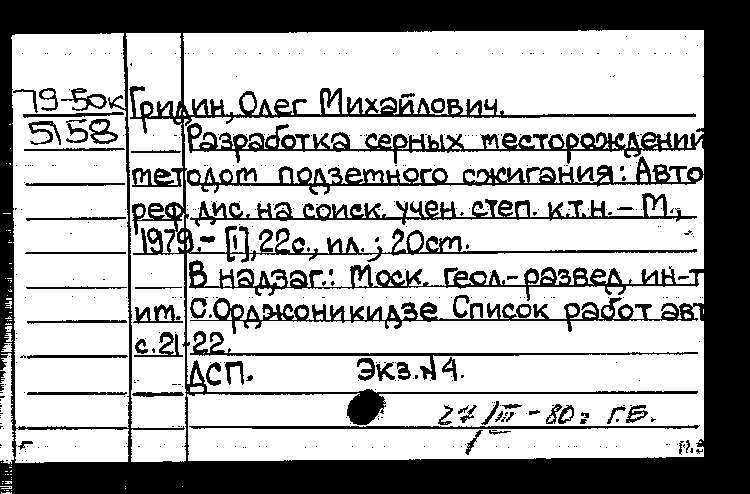 79-50к Гридин, Олег Михайлович.
5158 Разработка серных месторождений
методом подземного сжигания: Авто
реф. дис. на соиск. учен. степ. к.т.н. – М.,
1979. – [1], 22с., ил. ; 20см.
В надзаг.: Моск. геол.-развед. ин-т
им. С.Орджоникидзе. Список работ авт
с.21-22.
ДСП. Экз.№4.
27/III - 80г Г.Б.